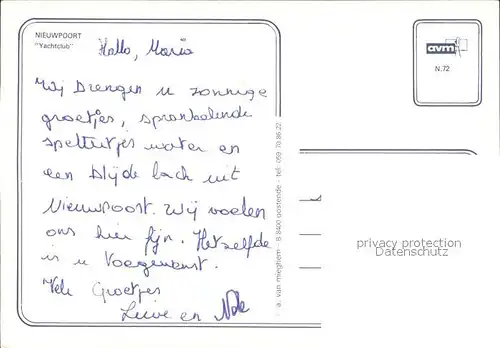 NIEUWPOORT
"Yachtclub"
Hallo, Maria
Wij brengen u zonnige
groetjes, sprankelende
spettertjes water en
een blijde lach uit
Nieuwpoort. Wij voelen
ons hier fijn. Hetzelfde
is u toegewenst.
Vele Groetjes
Lieve en
avm
N.72
a. van mieghem - B 8400 oostende - tel: 059
privacy protection
Datenschutz